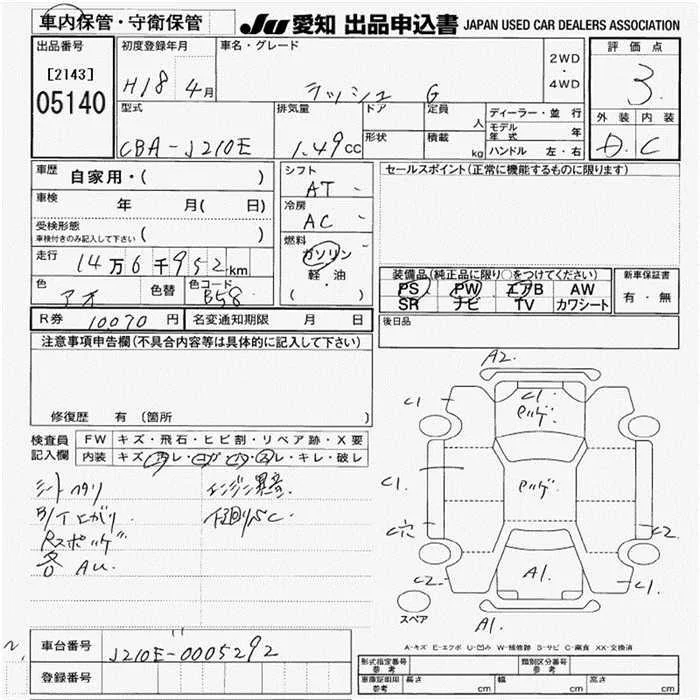 車内保管・守衛保管
JU 愛知 出品申込書 JAPAN USED CAR DEALERS ASSOCIATION
出品番号
[2143]
05140
初度登録年月
H18 4月
車名・グレード
ラッシュ G
2WD
・
4WD
評価点
3
外装 内装
D. C
型式
CBA-J210E
排気量
1.49cc
ドア
形状
定員 人
積載 kg
ディーラー・並 行
モデル年式 年
ハンドル 左・右
車歴 自家用・( )
車検 年 月( 日)
受検形態
車検付きのみ記入して下さい ( )
走行 14万6千952km
色 アオ 色替 色コード B58
シフト
AT
冷房
AC
燃料
ガソリン
軽・油
( )
セールスポイント(正常に機能するものに限ります)
装備品(純正品に限り○をつけてください)
PS PW エアB AW
SR ナビ TV カワシート
新車保証書
有・無
R券 10,070 円 名変通知期限 月 日
後日品
注意事項申告欄(不具合内容等は具体的に記入して下さい)
修復歴 有 (箇所 )
検査員記入欄
FW キズ・飛石・ヒビ割・リペア跡・X要
内装 キズ・汚レ・コゲ・ヒビ・スレ・キレ・破レ
シートヘタリ エンジン異音.
下回リSC.
各 AU.
A2.
C1
C1
C1
C1.
C2
C2
C1
A1.
A1.
スペア
A-キズ E-エクボ U-凹み W-補修跡 S-サビ C-腐食 XX-交換済
車台番号 J210E-0005292
登録番号
形式指定番号 参考
類別区分番号 参考
車庫証明用 参考 長さ cm 幅 cm 高さ cm